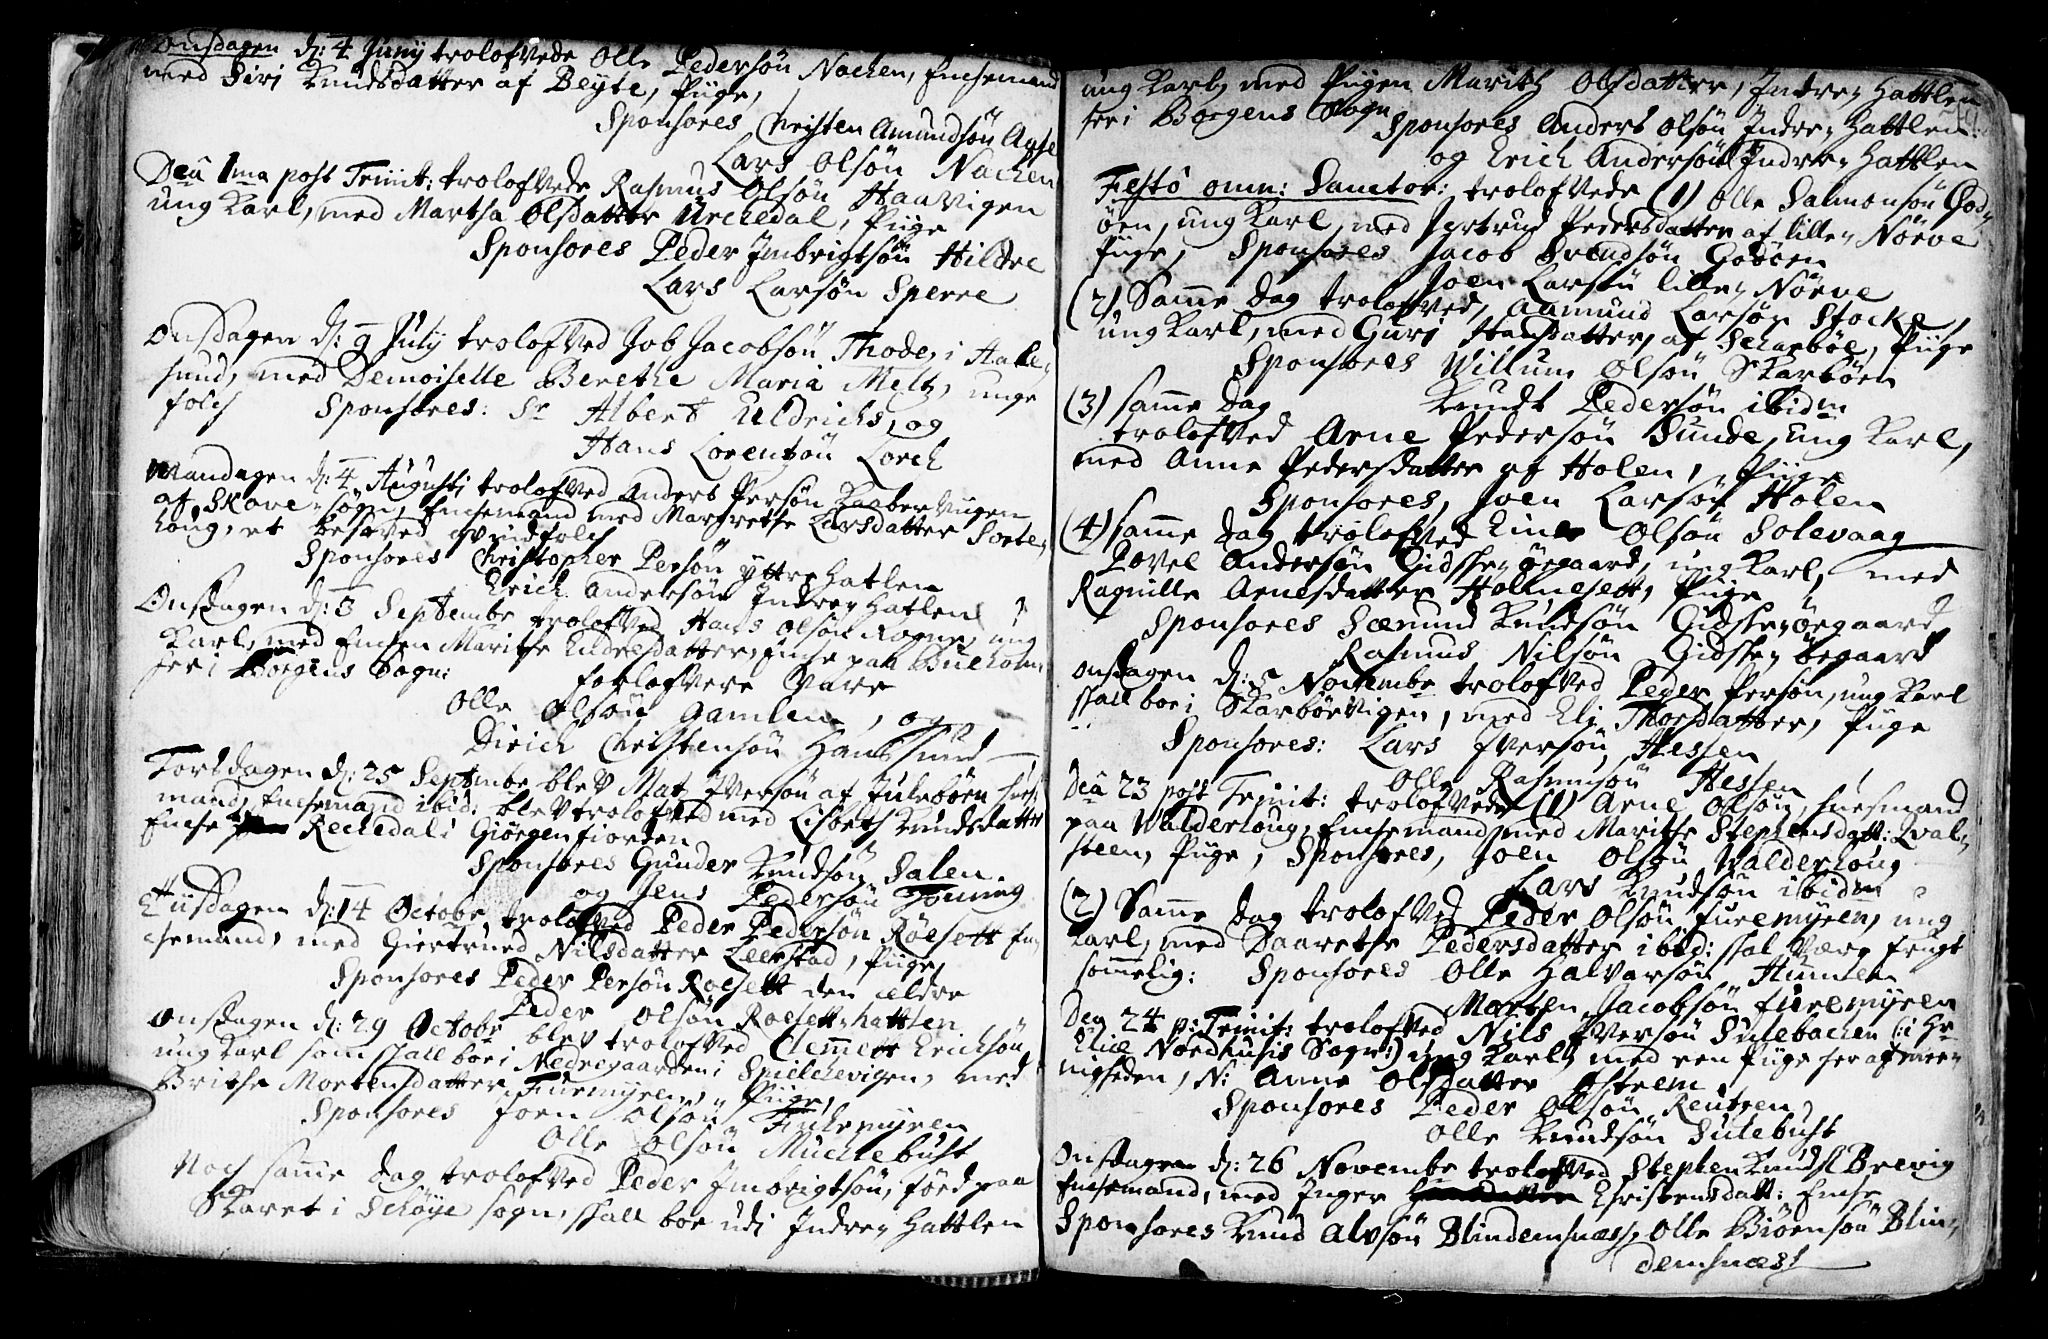 Onsdagen d: 4 Junij trolofvede Olle Pedersøn Nachen, Enchemand
med Siri Knudsdatter af Beyte, Piige,
Sponsores Christen Amundsøn Aase
Lars Olsøn Nachen
Dca 1ma post Trinit: trolofvede Rasmus Olsøn Haavigen
ung Karl, med Martha Olsdatter Urchedal, Piige
Sponsores Peder Imbrigtsøn Hildre
Lars Larsøn Sperre
Onsdagen d: 9 July trolofved Job Jacobsøn Thode, i Aale,
sund, med Demoiselle Berethe Maria Meltz, unge
folch Sponsores: Sr Albert Uldrichs, og
Hans Lorentzøn Lorch
Mandagen d: 4 Augusti trolofved Anders Persøn Kaabervugen
af Skore-sogn, Enchemand med Margrethe Larsdatter Sorte,
houg, et besoved qvindfolch
Sponsores Christopher Persøn yttre Hatlen
Erich Andersøn Indre Hatlen
Onsdagen d: 3 Septembr trolofved Hans Olsøn Rogne, ung
Karl, med Enchen Marithe Endresdatter, Enche paa Bueholm
her i Borgens Sogn: forlofvere vare
Olle Olsøn Gamlem, og
Dirich Christensøn Hanssund
Torsdagen d: 25 Septembr blev Matz Iversøn af Julebøen huus
mand, Enchemand ibid: blev trolofved med Lisbeth Knudsdatter
Enche Rechedal i Giørgenfiorden
Sponsores Gunder Knudsøn Dalen
og Jens Pedersøn Tonning
Tiisdagen d: 14 Octobr trolofved Peder Pedersøn Røesett En,
chemand, med Giertrued Nilsdatter Leerstad, Piige,
Sponsores Peder Persøn Roesett den ældre
Peder Olsøn Roesett-hattlen
Onsdagen d: 29 Octobr blev trolofved Clemmet Erichsøn
ung Karl som skall boe i Nedregaarden i Spielchevigen, med
Brithe Mortensdatter Furmyren, Piige,
Sponsores Joen Olsøn Furemyren
Olle Olsøn Mucklebust
Noch samme dag trolofved Peder Imbrigtsøn, fød paa
Skaret i Schøye sogn, skall boe udi Indre, Hattlen
ung Karl, med Piigen Marith Olsdatter, Indre, Hattlen
her i Borgens Sogn
Sponsores Anders Olsøn Indre, Hattlen
og Erich Andersøn Indre, Hattlen
Festo omn: Sanctor: trolofvede (1) Olle Salmonsøn God,
øen, ung Karl, med Jertrud Pedersdatter af lille, Nørve
Piige, Sponsores Jacob Svendsøn Godøen
Joen Larsøn lille, Nørve
(2) Samme dag trolofved, Aamund Larsøn Stocke,
ung Karl, med Guri Halsdatter, af Scharbøe, Piige
Sponsores Willum Olsøn Skarbøen
Knudt Pedersøn ibidm
(3) samme dag
trolofved Arne Pedersøn Sunde, ung Karl,
med Anne Pedersdatter af Holen, Piige
Sponsores, Joen Larsøn Holen
Einer Olsøn Solevaag
(4) samme dag trolofved
Povel Andersøn Gidske, øegaard, ung Karl, med
Ragnille Arnesdatter Holmesett, Piige
Sponsores Sæmund Knudsøn Gidske, øegaard
Rasmus Nilsøn Gidske, øegaard
Onsdagen d: 5 Novembr trolofved Peder Persøn, ung Karl
skall boe i Skarbøevigen, med Eli Thorsdatter, Piige
Sponsores: Lars Iversøn Hessen
Olle Rasmusøn Hessen
Dca 23 post Trinit: trolofvede (1) Arne Olsøn, huusmand
paa Walderhoug, Enchemand, med Marithe Stephensdatt: Qval,
steen, Piige, Sponsores, Joen Olsøn Walderhoug
Lars Knudsøn ibidm
(2) Samme dag trolofved Peder Olsøn Furemyren, ung
Karl, med Daarethe Pedersdatter ibid: skal være frugt
sommelig: Sponsores Olle Halvarsøn Humlen
Morten Jacobsøn Furemyren
Dca 24 p: Trinit: trolofved Nils Iversøn Sulebachen (: i Hr
Elie Nordhusis Sogn:) ung Karl, med een Piige her af mee,
nigheden, N: Anne Olsdatter Østrem,
Sponsores Peder Olsøn Reutzen,
Olle Knudsøn Sulebust
Onsdagen d: 26 Novembr trolofved Stephen Knuds: Brevig
Enchemand, med Inger Christensdatt: Enche
Sponsores Knud Alvsøn Blindemsnæss, Olle Biørnsøn Blin,
demsnæss